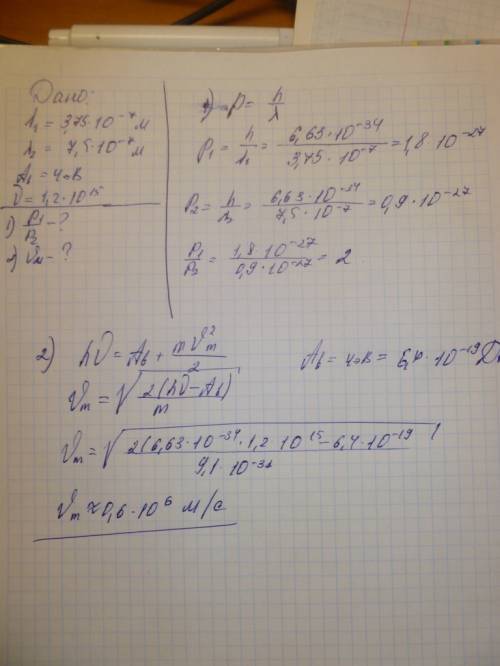 Дано:
λ₁ = 3,75·10⁻⁷ м
λ₂ = 7,5·10⁻⁷ м
Aв = 4эВ
ν = 1,2·10¹⁵
1) P₁/P₂ - ?
2) νм - ?
1) p = h/λ
P₁ = h/λ₁ = 6,63·10⁻³⁴/3,75·10⁻⁷ = 1,8·10⁻²⁷
P₂ = h/λ₂ = 6,63·10⁻³⁴/7,5·10⁻⁷ = 0,9·10⁻²⁷
P₁/P₂ = 1,8·10⁻²⁷/0,9·10⁻²⁷ = 2
2) hν = Aв + mνm²/2
Aв = 4эВ = 6,4·10⁻¹⁹ Дж
νm = √(2(hν-Aв)/m)
νm = √(2(6,63·10⁻³⁴·1,2·10¹⁵-6,4·10⁻¹⁹)/9,1·10⁻³¹)
νm ≈ 0,6·10⁶ м/с